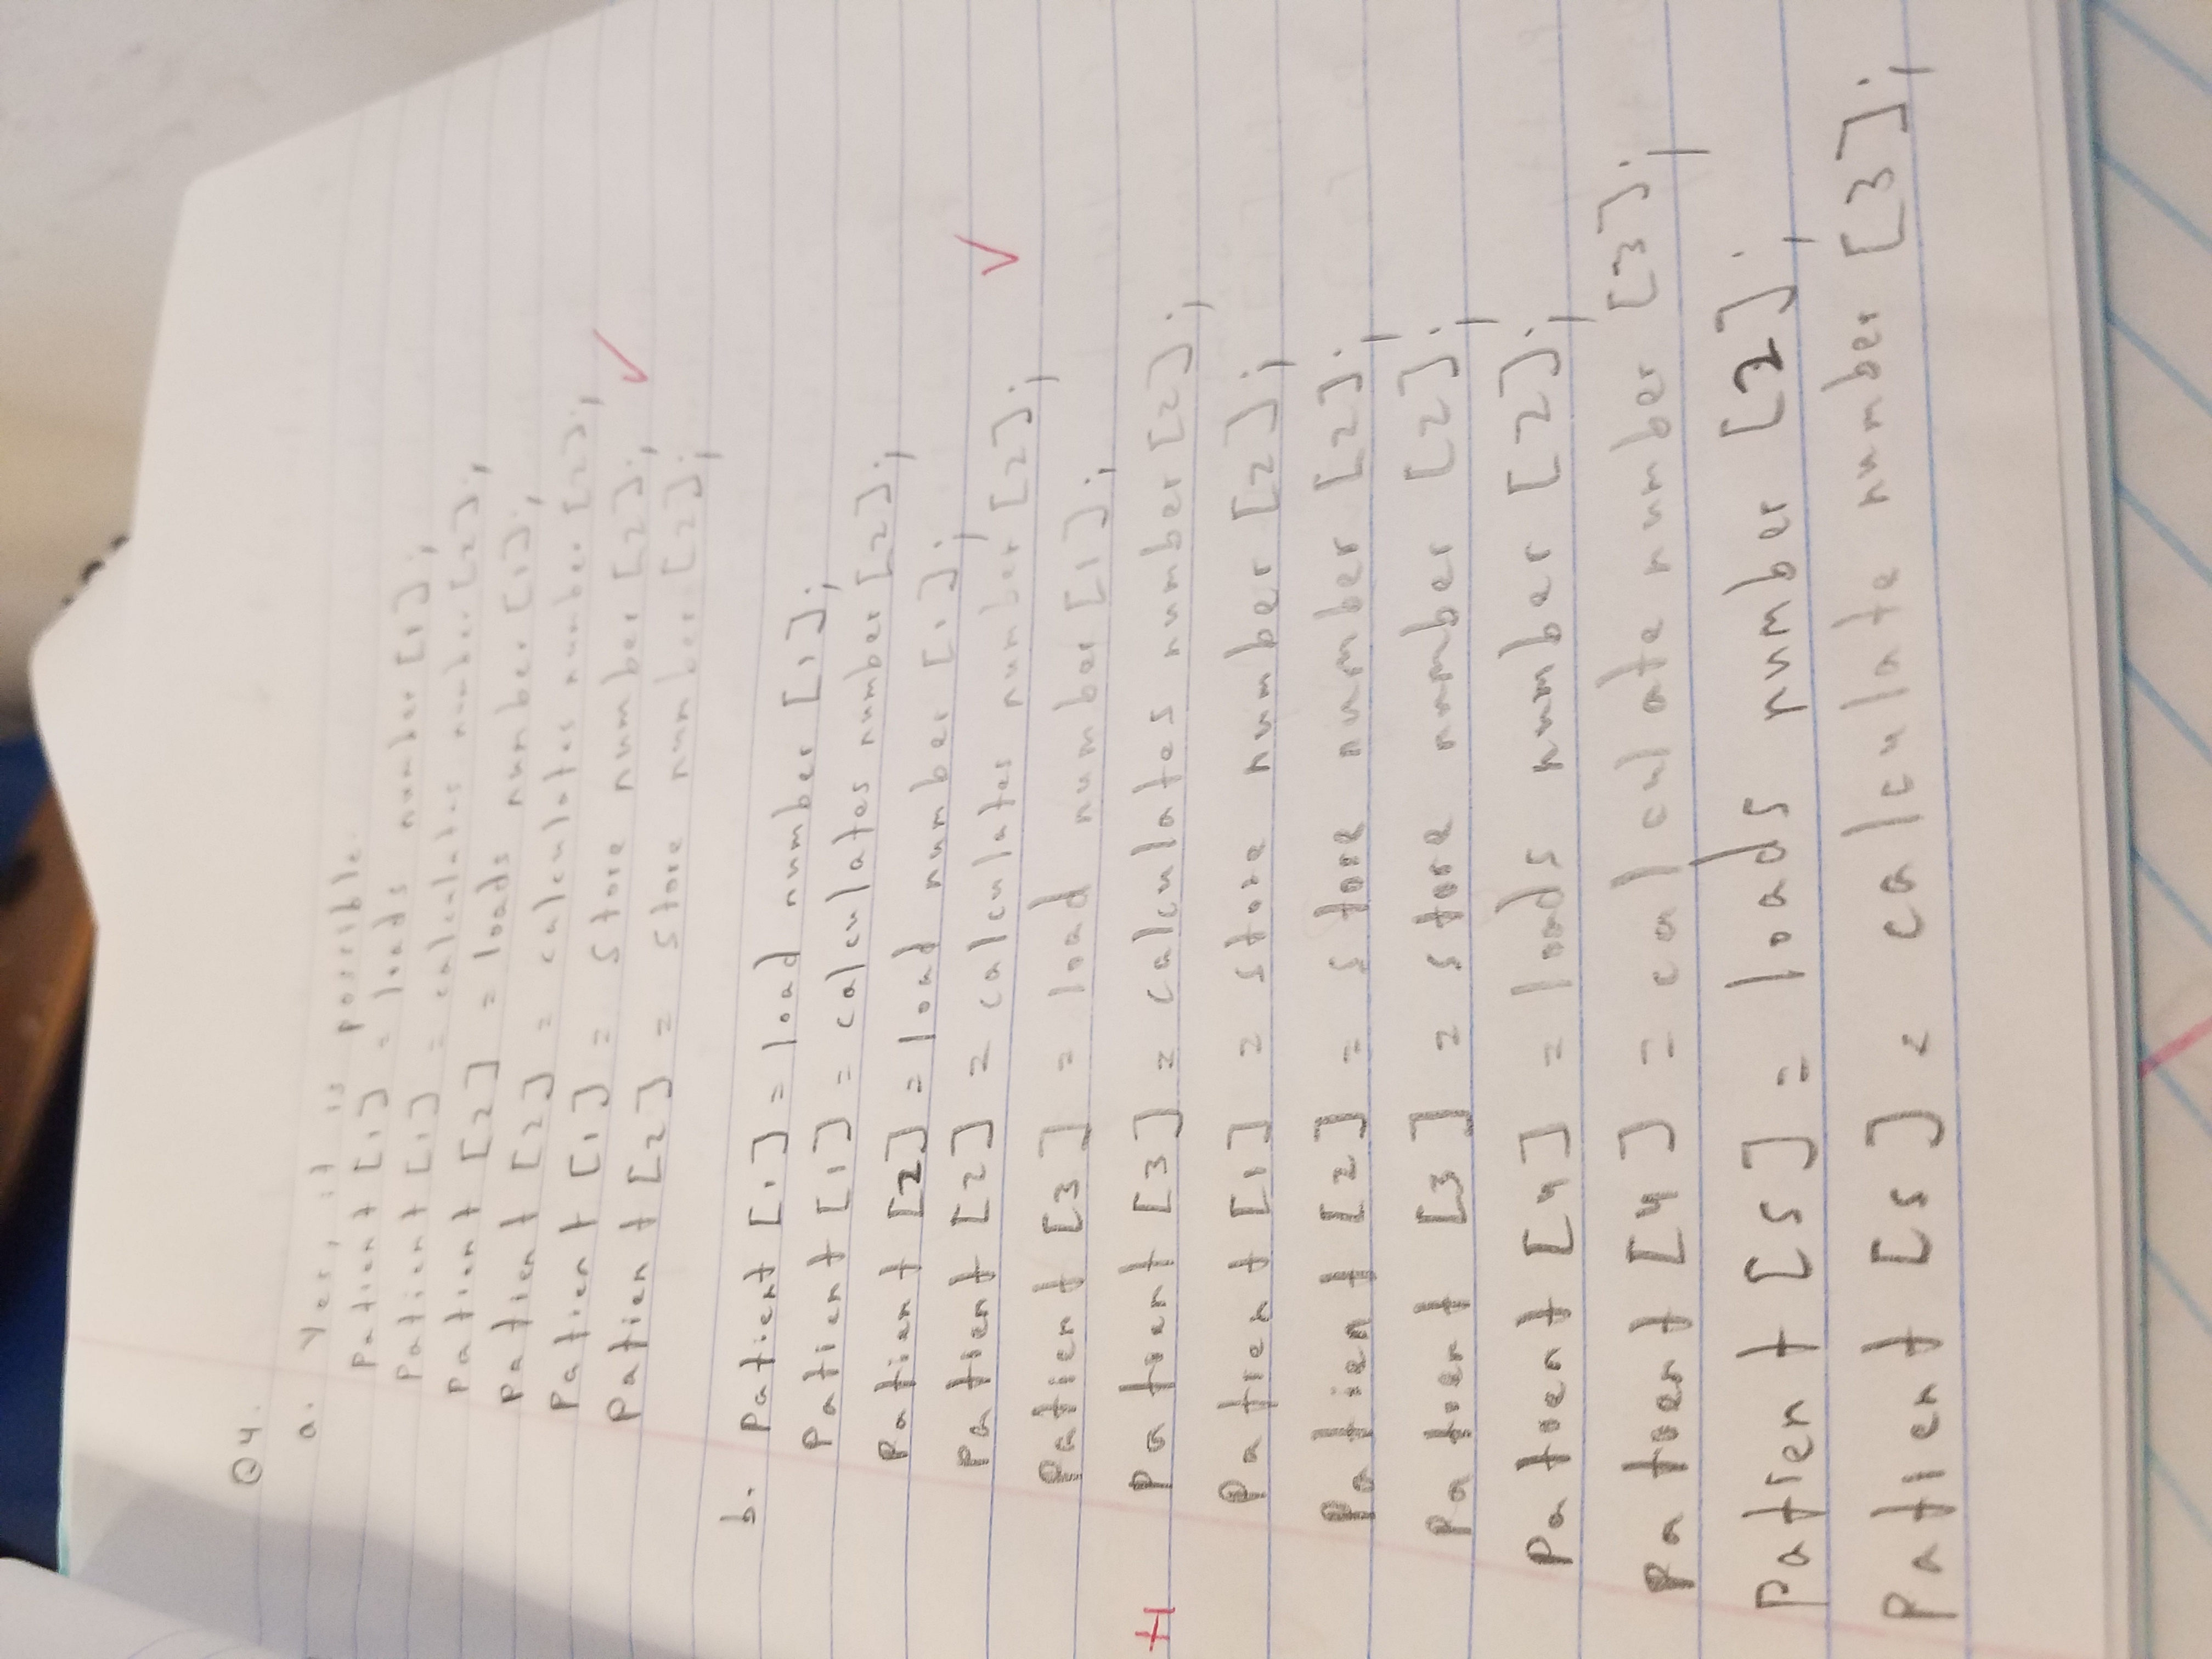 Q4.
a. Yes, it is possible.
Patient [1] = loads number [1];
Patient [1] = calculates number [2];
Patient [2] = loads number [1];
Patient [2] = calculates number [2];
Patient [1] = store number [2];
Patient [2] = store number [2];
b. Patient [1] = load number [1];
Patient [1] = calculates number [2];
Patient [2] = load number [1];
Patient [2] = calculates number [2];
Patient [3] = load number [1];
+1 Patient [3] = calculates number [2];
Patient [1] = store number [2];
Patient [2] = store number [2];
Patient [3] = store number [2];
Patient [4] = loads number [2];
Patient [4] = calculate number [3];
Patient [5] = loads number [2];
Patient [5] = calculate number [3];